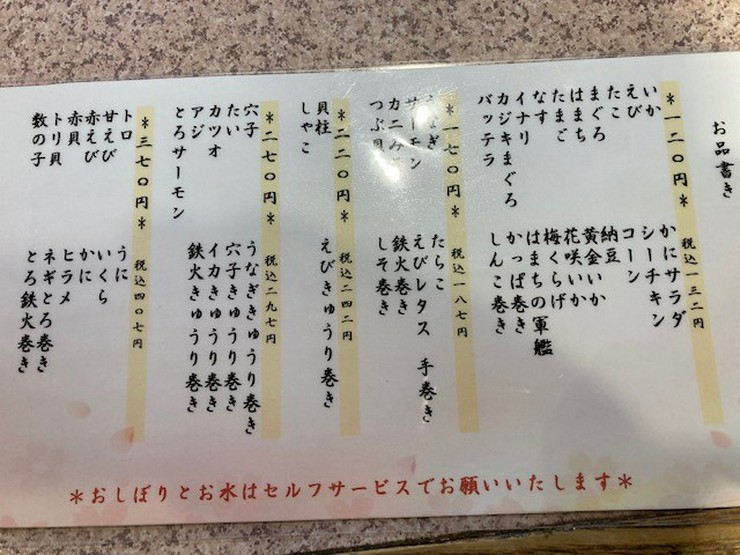 お品書き
*一二〇円* 税込一三二円
いか
えび
たこ
まぐろ
はまち
たまご
なす
イナリ
カジキまぐろ
バッテラ
かにサラダ
シーチキン
コーン
納豆
黄金いか
花咲いか
梅くらげ
はまちの軍艦
かっぱ巻き
しんこ巻き
*一七〇円* 税込一八七円
サーモン
カニみ
つぶ貝
たらこ
えびレタス 手巻き
鉄火巻き
しそ巻き
*二二〇円* 税込二四二円
貝柱
しゃこ
えびきゅうり巻き
*二七〇円* 税込二九七円
穴子
たい
カツオ
アジ
とろサーモン
うなぎきゅうり巻き
穴子きゅうり巻き
イカきゅうり巻き
鉄火きゅうり巻き
*三七〇円* 税込四〇七円
トロ
甘えび
赤えび
赤貝
トリ貝
数の子
うに
いくら
かに
ヒラメ
ネギとろ巻き
とろ鉄火巻き
*おしぼりとお水はセルフサービスでお願いいたします*